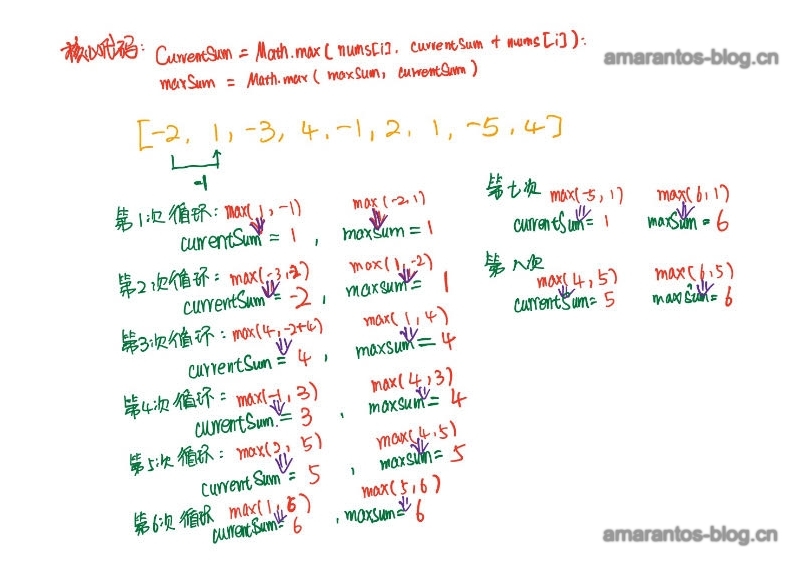 核心代码: CurrentSum = Math.max( nums[i], currentSum + nums[i]);
maxSum = Math.max( maxSum, currentSum)
amarantos-blog.cn
[-2, 1, -3, 4, -1, 2, 1, -5, 4]
-1
第1次循环: max(1, -1) max(-2, 1)
currentSum = 1, maxsum = 1
第2次循环: max(-3, -2) max(1, -2)
currentSum = -2, maxsum = 1
第3次循环: max(4, -2+4) max(1, 4)
currentSum = 4, maxsum = 4
第4次循环: max(-1, 3) max(4, 3)
currentSum = 3, maxsum = 4
第5次循环: max(2, 5) max(4, 5)
currentSum = 5, maxsum = 5
第6次循环 max(1, 6) max(5, 6)
currentSum = 6, maxsum = 6
第七次 max(-5, 1) max(6, 1)
currentSum = 1 maxSum = 6
第八次 max(4, 5) max(6, 5)
currentSum = 5 maxSum = 6
amarantos-blog.cn